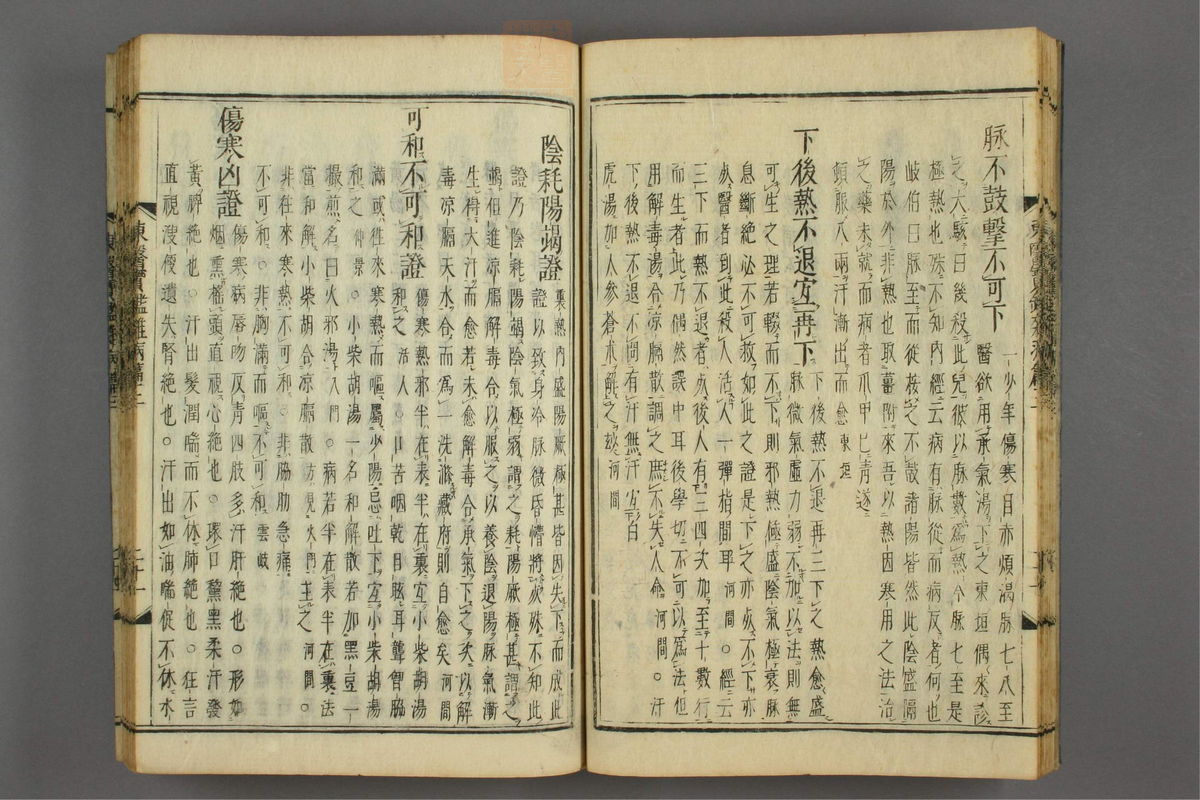 脉不鼓擊不可下
一少年傷寒目赤煩渴脉七八至
醫欲用承氣湯下之東垣偶來診
之大駭曰後殺此兒彼以脉數爲熱今脉七至是
極熱也殊不知內經云病有脉從而病反者何也
岐伯曰脉至而從按之不鼓諸陽皆然此陰盛隔
陽於外非熱也取薑附來吾以熱因寒用之法治
之藥未就而病者爪甲已青遂
頓服八兩汗漸出而愈東垣
下後熱不退宜再下
下後熱不退再三下之熱愈盛
脉微氣虛力弱不加以法則無
可生之理若輟而不下則邪熱極盛陰氣極衰脉
息斷絕必不可救如此之證是下之亦死不下亦
死醫者到此殺人活人一彈指間耳河間○經云
三下而熱不退者死後人有三四次加至十數行
而生者此乃偶然誤中耳後學切不可以爲法但
用解毒湯合凉膈散調之庶不失人命河間○汗
下後熱不退不問有汗無汗宜白
虎湯加人參蒼术解之妙河間
陰耗陽竭證
裏熱內盛陽厥極甚皆因失下而成此
證以致身冷脉微昏憒將死殊不知此
證乃陰耗陽竭陰氣極弱謂之耗陽厥極甚謂之
竭但進凉膈解毒合以服之以養陰退陽脉氣漸
生得大汗而愈若未愈解毒合承氣下之次以解
毒凉膈天水合而爲一洗滌藏府則自愈矣河間
可和不可和證
傷寒熱邪半在表半在裏宜小柴胡湯
和之活人○口苦咽乾目眩耳聾胷脇
滿或往來寒熱而嘔屬少陽忌吐下宜小柴胡湯
和之仲景○小柴胡湯一名和解散若加黑豆一
撮煎名曰火邪湯入門○病若半在表半在裏法
當和解小柴胡合凉膈散防風火門主之河間○
非在來寒熱不可和非脇肋急痛
不可和非胸滿而嘔不可和雲岐
傷寒凶證
傷寒病唇吻反青四肢多汗肝絕也○形如
烟熏搖頭直視心絕也○環口黧黑柔汗發
黃脾絕也○汗出髮潤喘而不休肺絕也○狂言
直視溲便遺失腎絕也○汗出如油喘促不休水